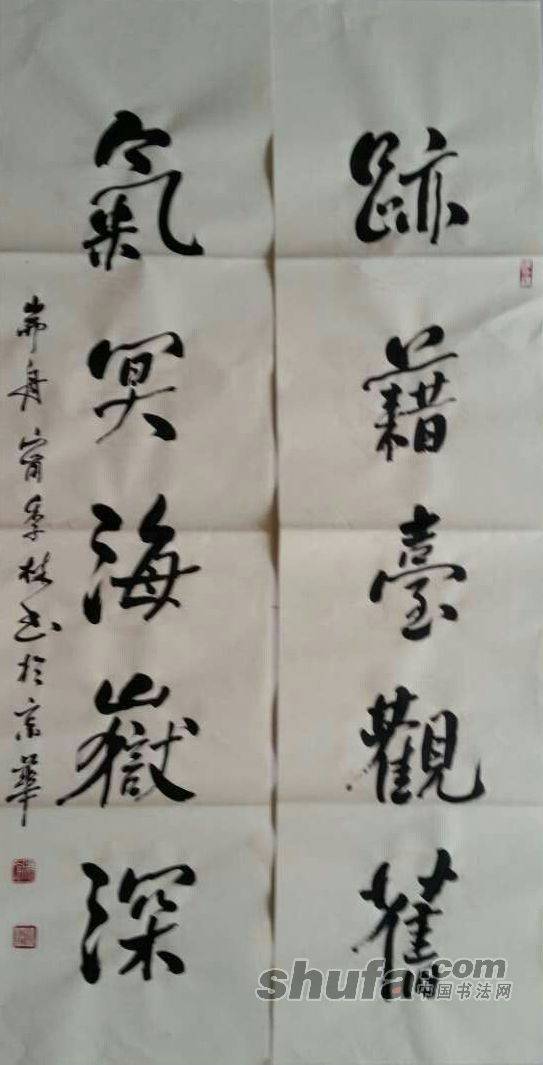 跡藉臺觀舊
氣冥海嶽深
季枝书於京華
shufa.com
中国书法网